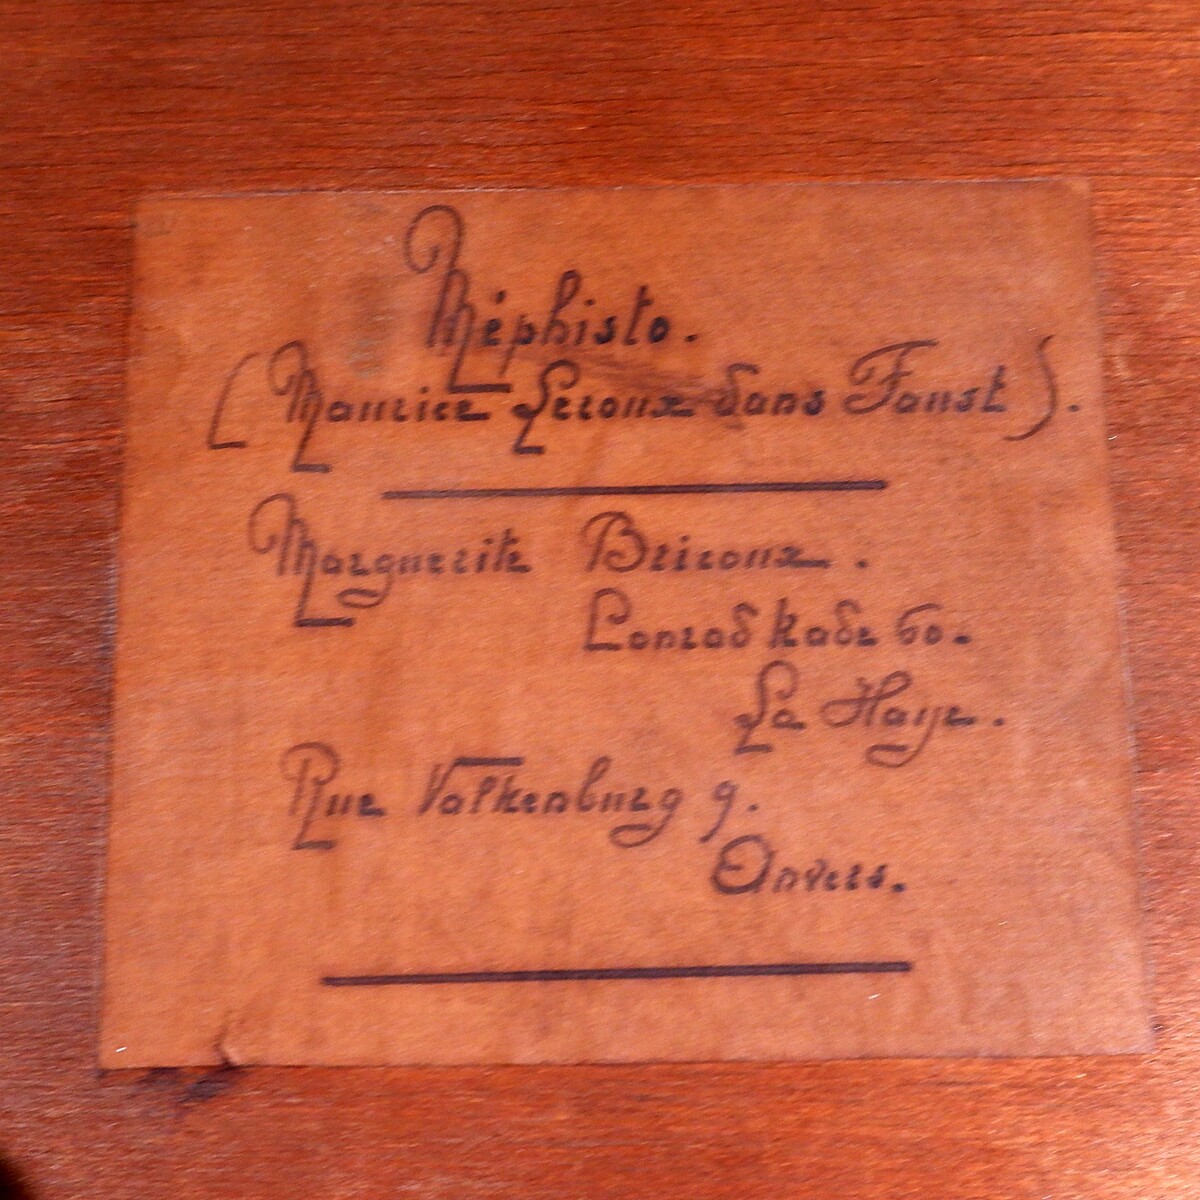 Méphisto.
(Maurice Leroux dans Faust).
Marguerite Briroux.
Conradkade 60.
La Haye.
Rue Valkenburg 9.
Anvers.